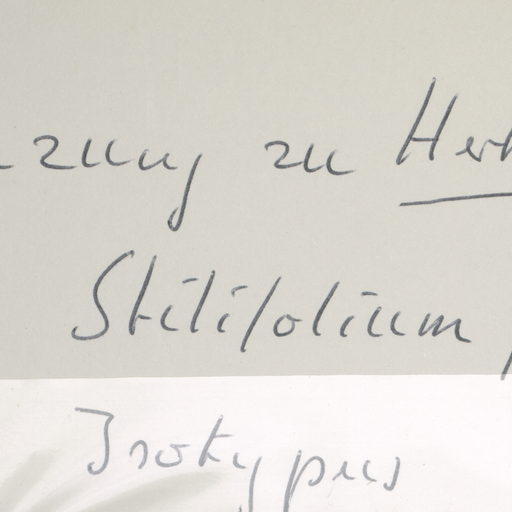 zu Her
Stilifolium
Isotypus